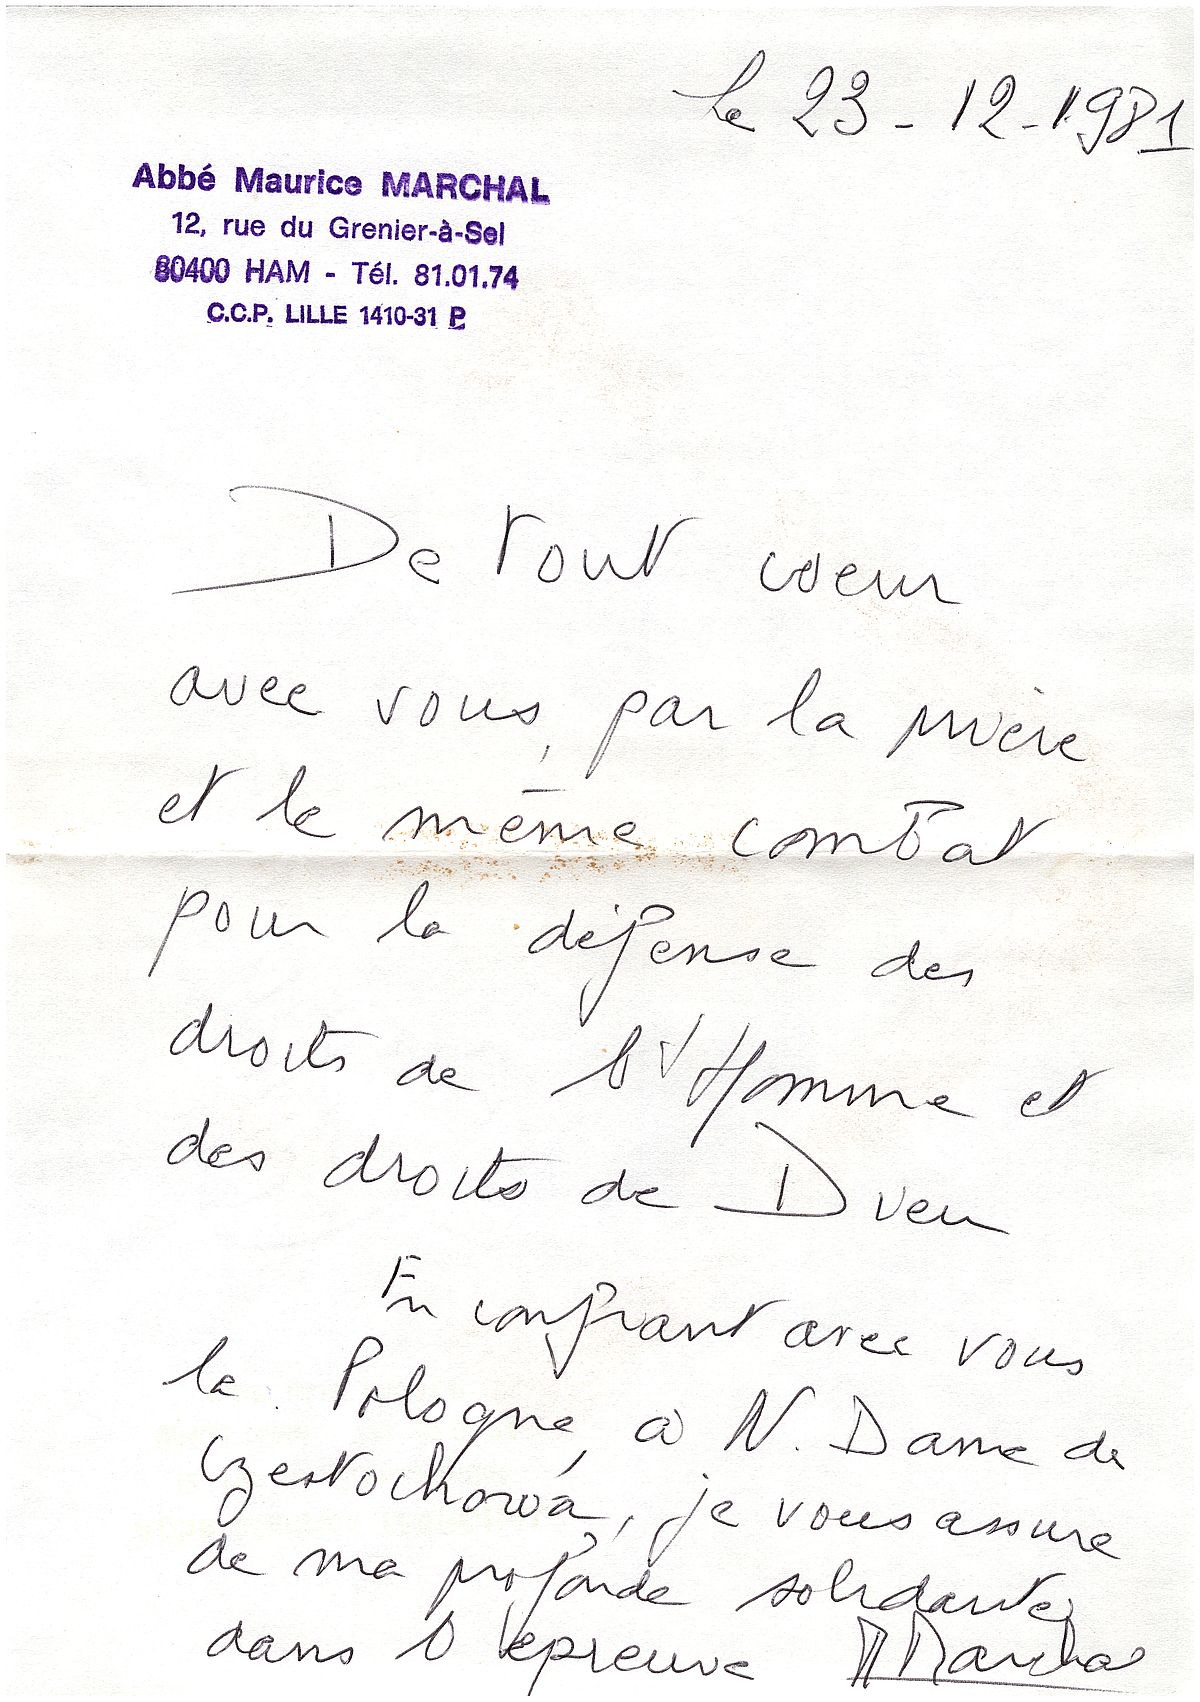 le 23-12-1981
Abbé Maurice MARCHAL
12, rue du Grenier-à-Sel
80400 HAM - Tél. 81.01.74
C.C.P. LILLE 1410-31 P
De tout coeur
avec vous, par la prière
et le même combat
pour la défense des
droits de l'Homme et
des droits de Dieu
En confiant avec vous
la Pologne, à N. Dame de
Czestochowa, je vous assure
de ma profonde solidarité
dans l'épreuve M Marchal